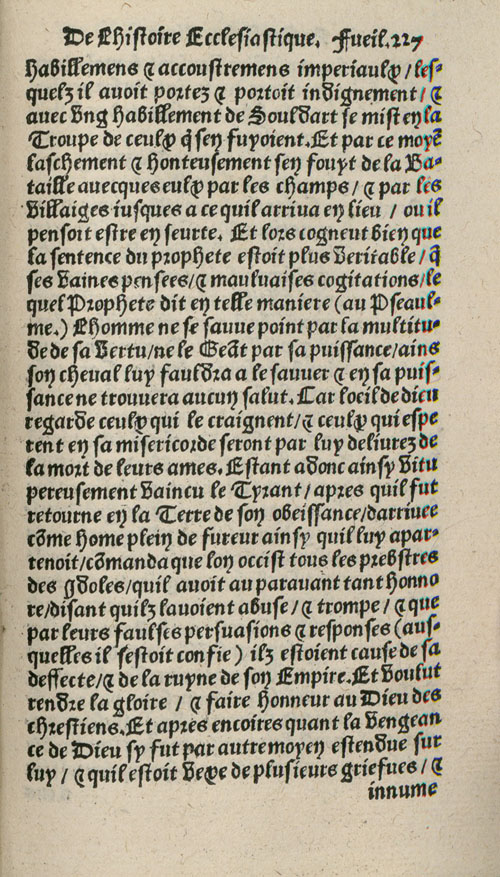 De Lhistoire Ecclesiastique. Fueil.227
habillemens ⁊ accoustremens imperiaulx / les-
quelz il auoit portez ⁊ portoit indignement / ⁊
auec vng habillement de Souldart se mist en la
Troupe de ceulx q̃ sen fuyoient. Et par ce moyẽ
laschement ⁊ honteusement sen fouyt de la Ba-
taille auecques eulx par les champs / ⁊ par les
villaiges iusques a ce quil arriua en lieu / ou il
pensoit estre en seurte. Et lors cogneut bien que
la sentence du prophete estoit plus veritable / q̃
ses vaines pensees / ⁊ mauluaises cogitations / le
quel Prophete dit en telle maniere (au Pseaul-
me.) Lhomme ne se sauue point par la multitu-
de de sa vertu / ne le Geãt par sa puissance / ains
son cheual luy fauldra a le sauuer ⁊ en sa puis-
sance ne trouuera aucun salut. Car loeil de dieu
regarde ceulx qui le craignent / ⁊ ceulx qui espe
rent en sa misericorde seront par luy deliurez de
la mort de leurs ames. Estant adonc ainsy vitu
pereusement vaincu le Tyrant / apres quil fut
retourne en la Terre de son obeissance / darriuee
cõme home plein de fureur ainsy quil luy apar-
tenoit / cõmanda que lon occist tous les prebstres
des Idoles / quil auoit au parauant tant honno
re / disant quilz lauoient abuse / ⁊ trompe / ⁊ que
par leurs faulses persuasions ⁊ responses (aus-
quelles il sestoit confie) ilz estoient cause de sa
deffecte / ⁊ de la ruyne de son Empire. Et voulut
rendre la gloire / ⁊ faire honneur au Dieu des
chrestiens. Et apres encoires quant la vengean
ce de Dieu sy fut par autre moyen estendue sur
luy / ⁊ quil estoit vexe de plusieurs griefues / ⁊
innume